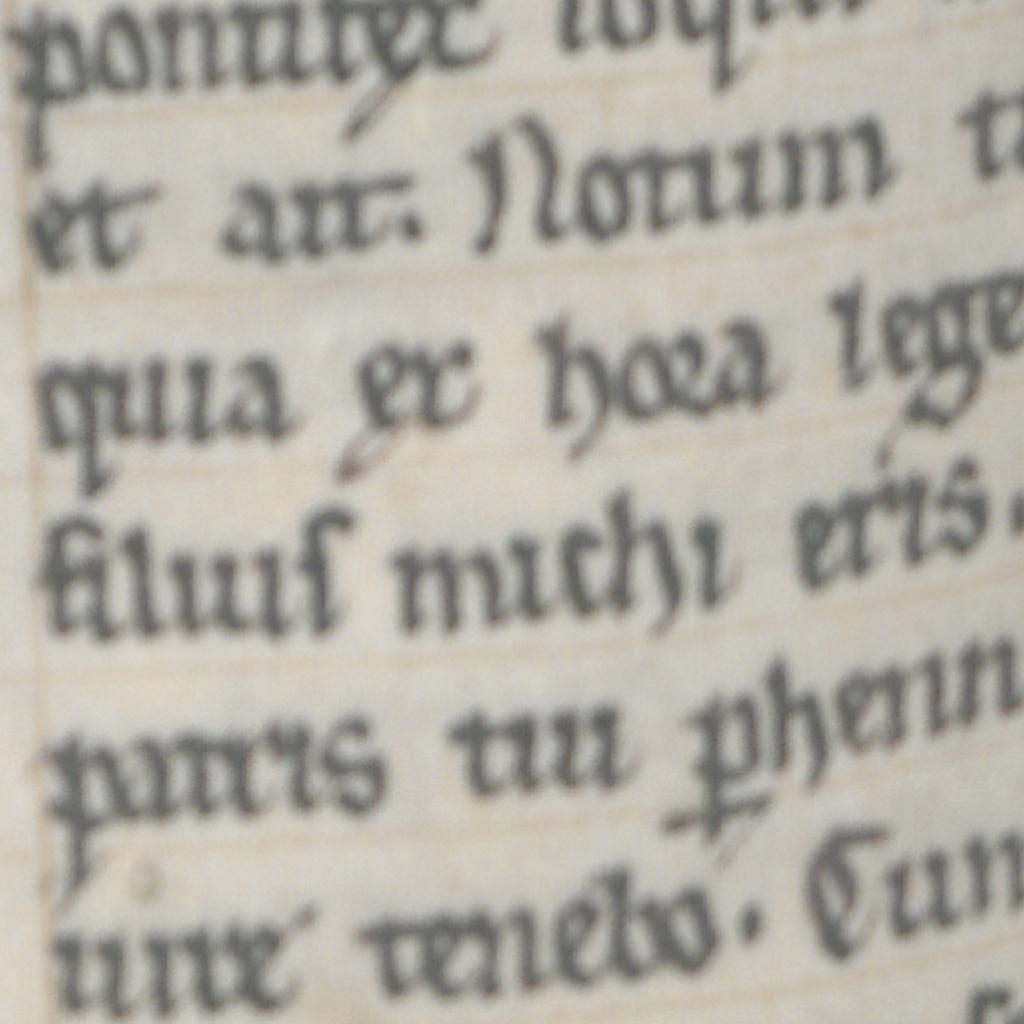 pontifex loqui
et ait. Notum
quia ex hora lege
filius michi eris.
patris tui phenn
uite tenebo. Cun